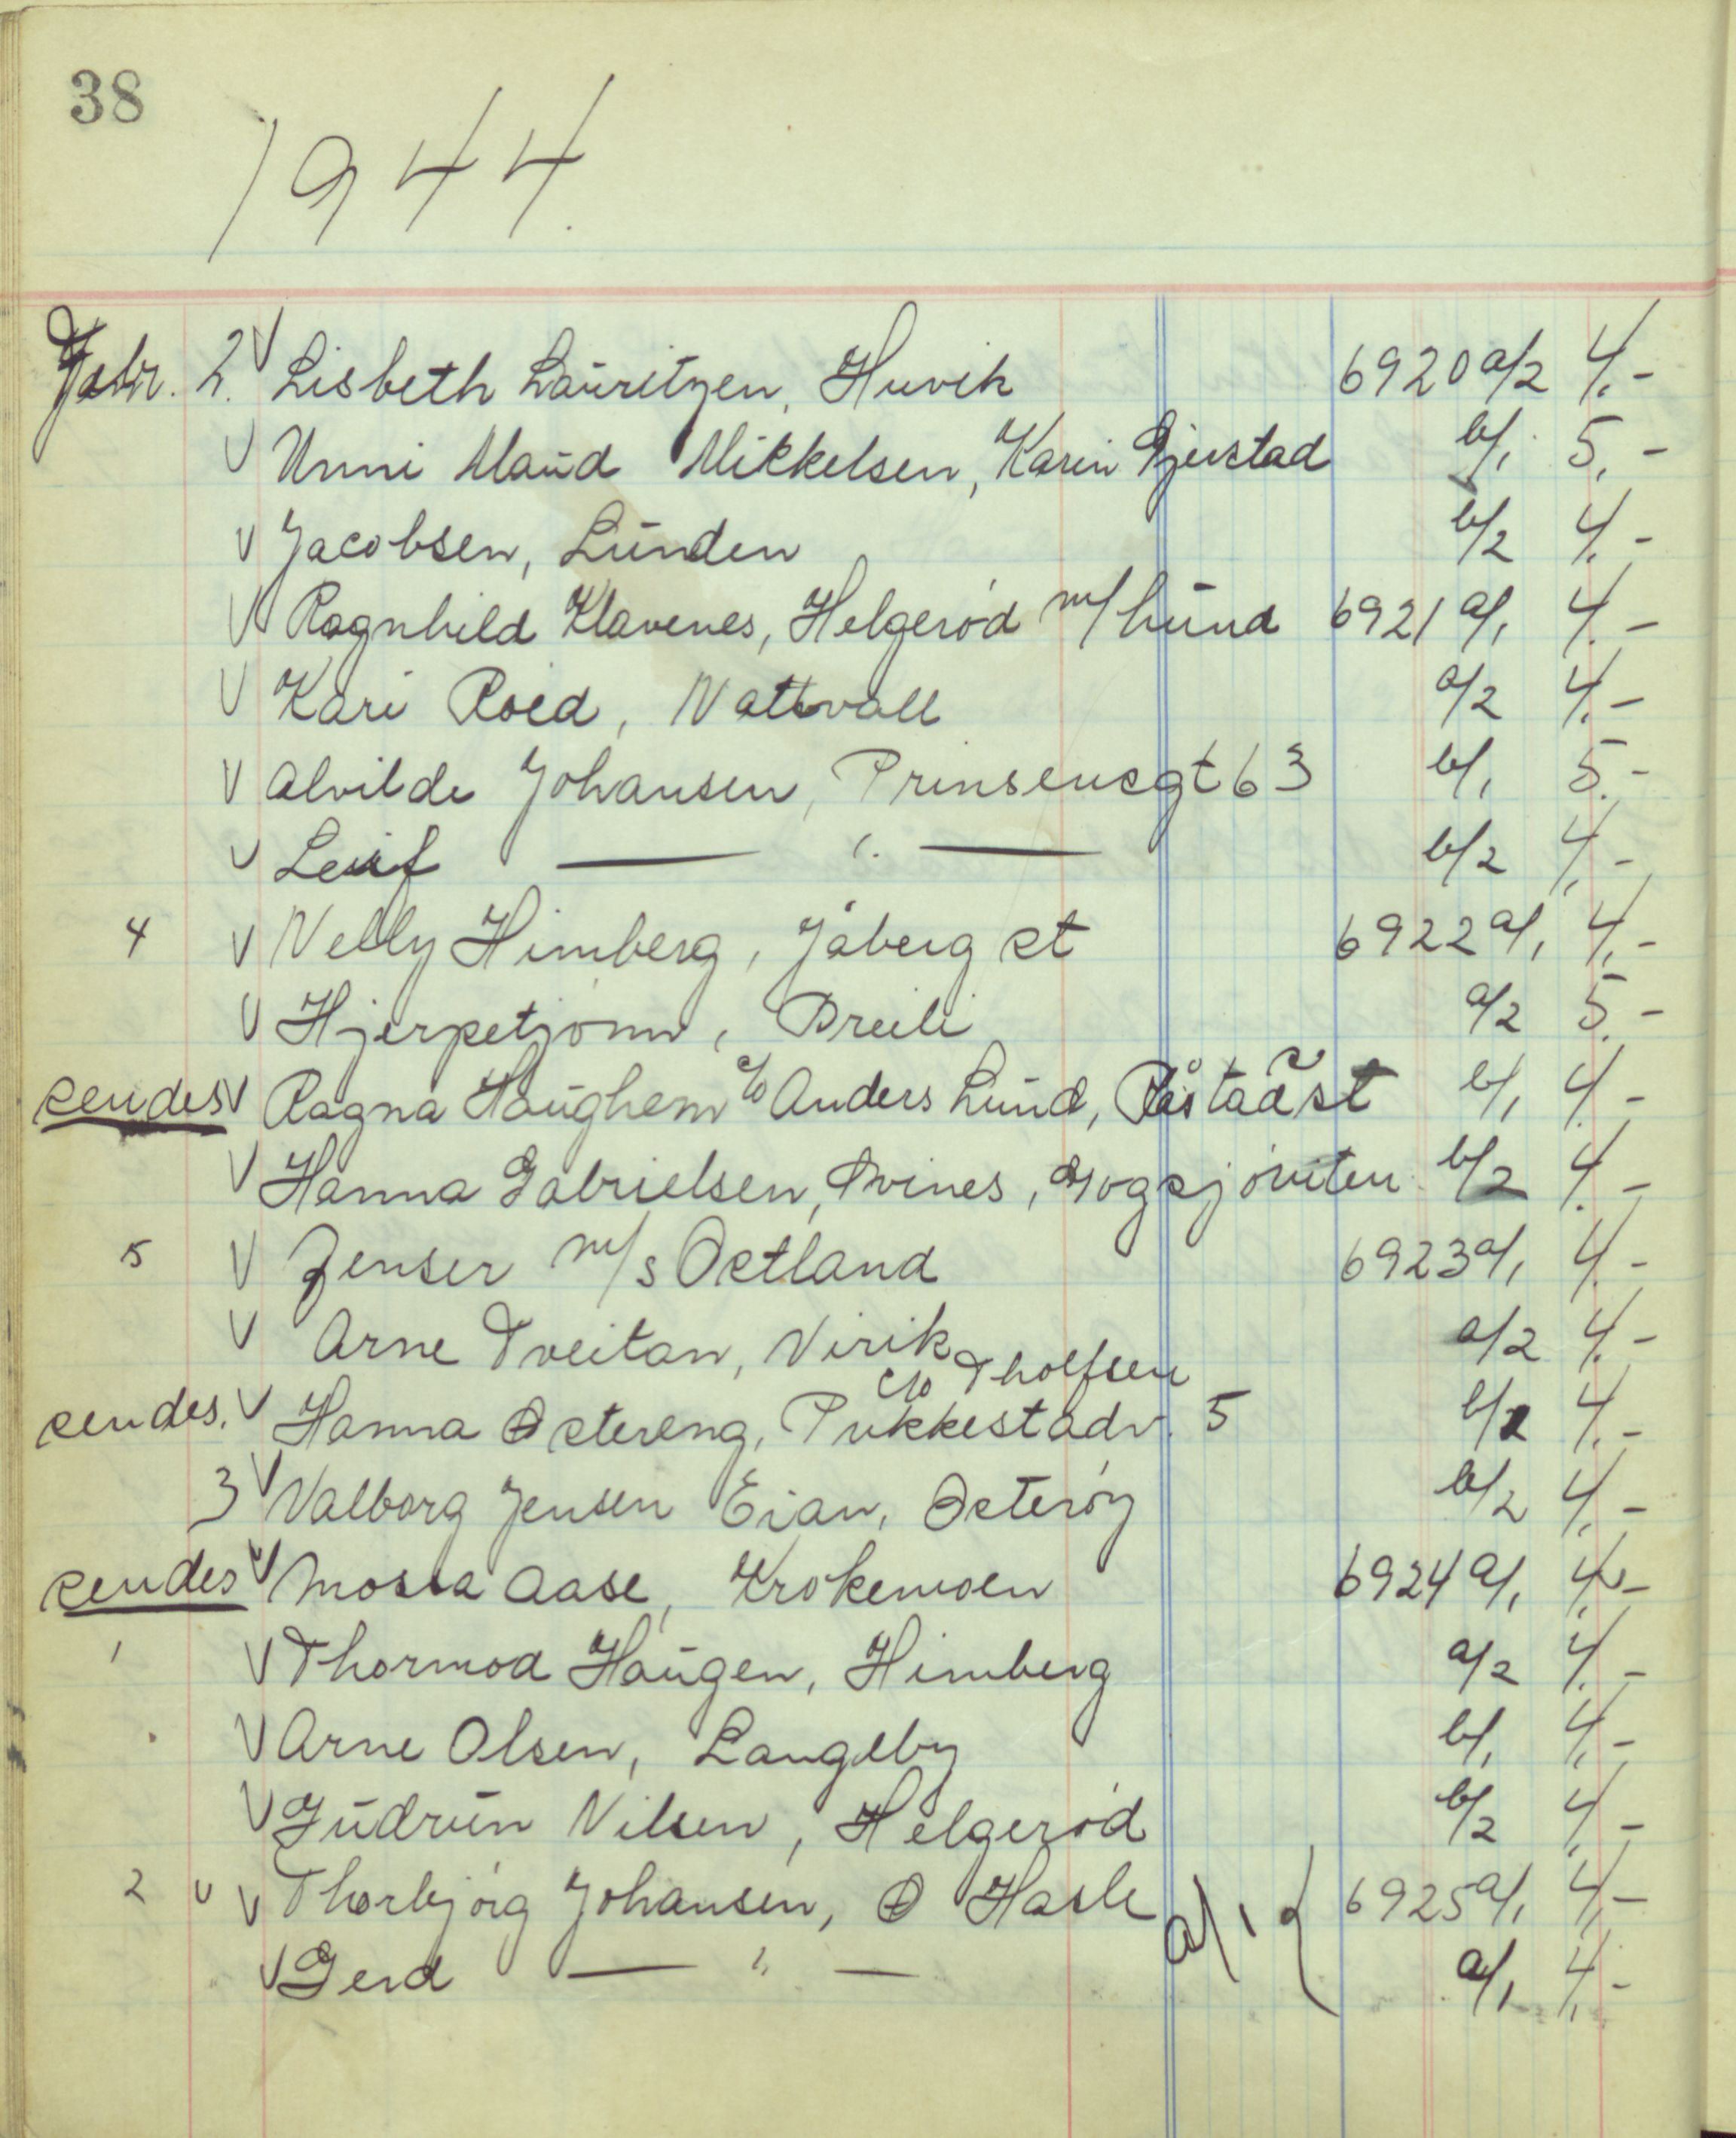 38
1944.
Febr. 2. V Lisbeth Lauritzen, Huvik 6920 a/2 4.-
V Unni Maud Mikkelsen, Karin Gjerstad b/1 5.-
V Jacobsen, Lunden b/2 4.-
V Ragnhild Klavenes, Helgerød m/hund 6921 a/1 4.-
V Kari Roed, Nattvall a/2 4.-
V Alvilde Johansen, Prinsensgt 63 b/1 5.-
V Leif — " — b/2 4.-
4 V Nelly Himberg, Jåberg st 6922 a/1 4.-
V Hjerpetjønn, Breili a/2 5.-
sendes V Ragna Haughem c/o Anders Lund, Råstad st b/1 4.-
V Hanna Gabrielsen, Svines, Gogsjøviten b/2 4.-
5 V Jenser m/s Østland 6923 a/1 4.-
V Arne Tveitan, Virik a/2 4.-
c/o Tholfsen
sendes. V Hanna Østereng, Pukkestadv. 5 b/1 4.-
3 V Valborg Jensen Eian, Østerøy b/2 4.-
sendes V Mossa Aase, Krokemoen 6924 a/1 4.-
1 V Thormod Haugen, Himberg a/2 4.-
V Arne Olsen, Langeby b/1 4.-
V Gudrun Nilsen, Helgerød b/2 4.-
2 V V Thorbjørg Johansen, Ø Hasle a/1 { 6925 a/1 4.-
V Gerd — " — a/1 4.-